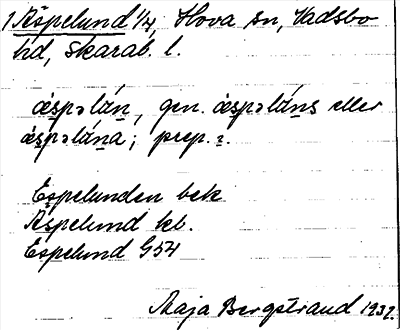 1 Äspelund 1/4, Hova sn, Vadsbo
hd, Skarab. l.
æspəlán, gen. æspəláns eller
æspəlána; prep. i.
Espelunden bek
Äspelund kb.
Espelund G54
Maja Bergstrand 1932.